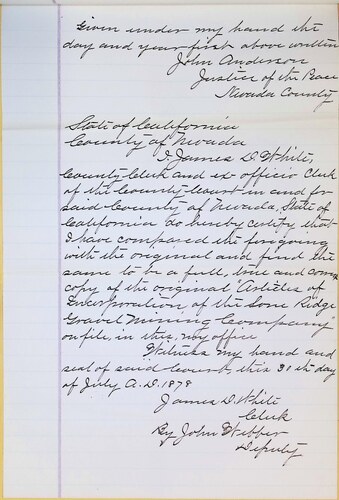 Given under my hand the
day and year first above written
John Anderson
Justice of the Peace
Nevada County
State of California
County of Nevada
I, James D. White,
County Clerk and ex-officio Clerk
of the County Court in and for
said County of Nevada, State of
California do hereby certify that
I have compared the foregoing
with the original and find the
same to be a full, true and correct
copy of the original Articles of
Incorporation of the Lone Ridge
Gravel Mining Company
on file, in this, my office
Witness my hand and
seal of said Court, this 31 th day
of July A.D. 1878
James D. White
Clerk
By John Webber
Deputy